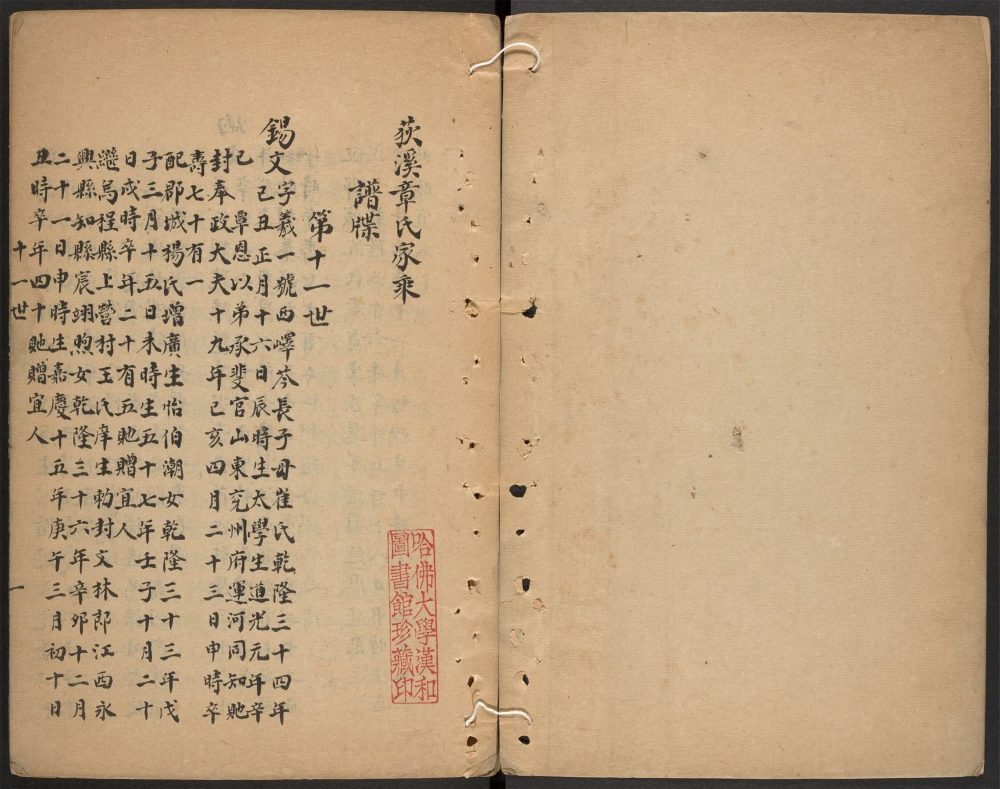 荻溪章氏家乘
譜牒
第十一世
錫文字羲一號西嶧芩長子母崔氏乾隆三十四年
己丑正月十六日辰時生太學生道光元年辛
巳覃恩以弟承斐官山東兖州府運河同知貤
封奉政大夫十九年己亥四月二十三日申時卒
壽七十有一
配郡城楊氏增廣生怡伯潮女乾隆三十三年戊
子三月十五日未時生五十七年壬子十月二十
日戌時卒年二十有五貤贈宜人
繼烏程縣上營村王氏庠生勅封文林郎江西永
興縣知縣宸翊煦女乾隆三十六年辛卯十二月
二十一日申時生嘉慶十五年庚午三月初十日
丑時卒年四十貤贈宜人
十一世 一
哈佛大學漢和
圖書館珍藏印